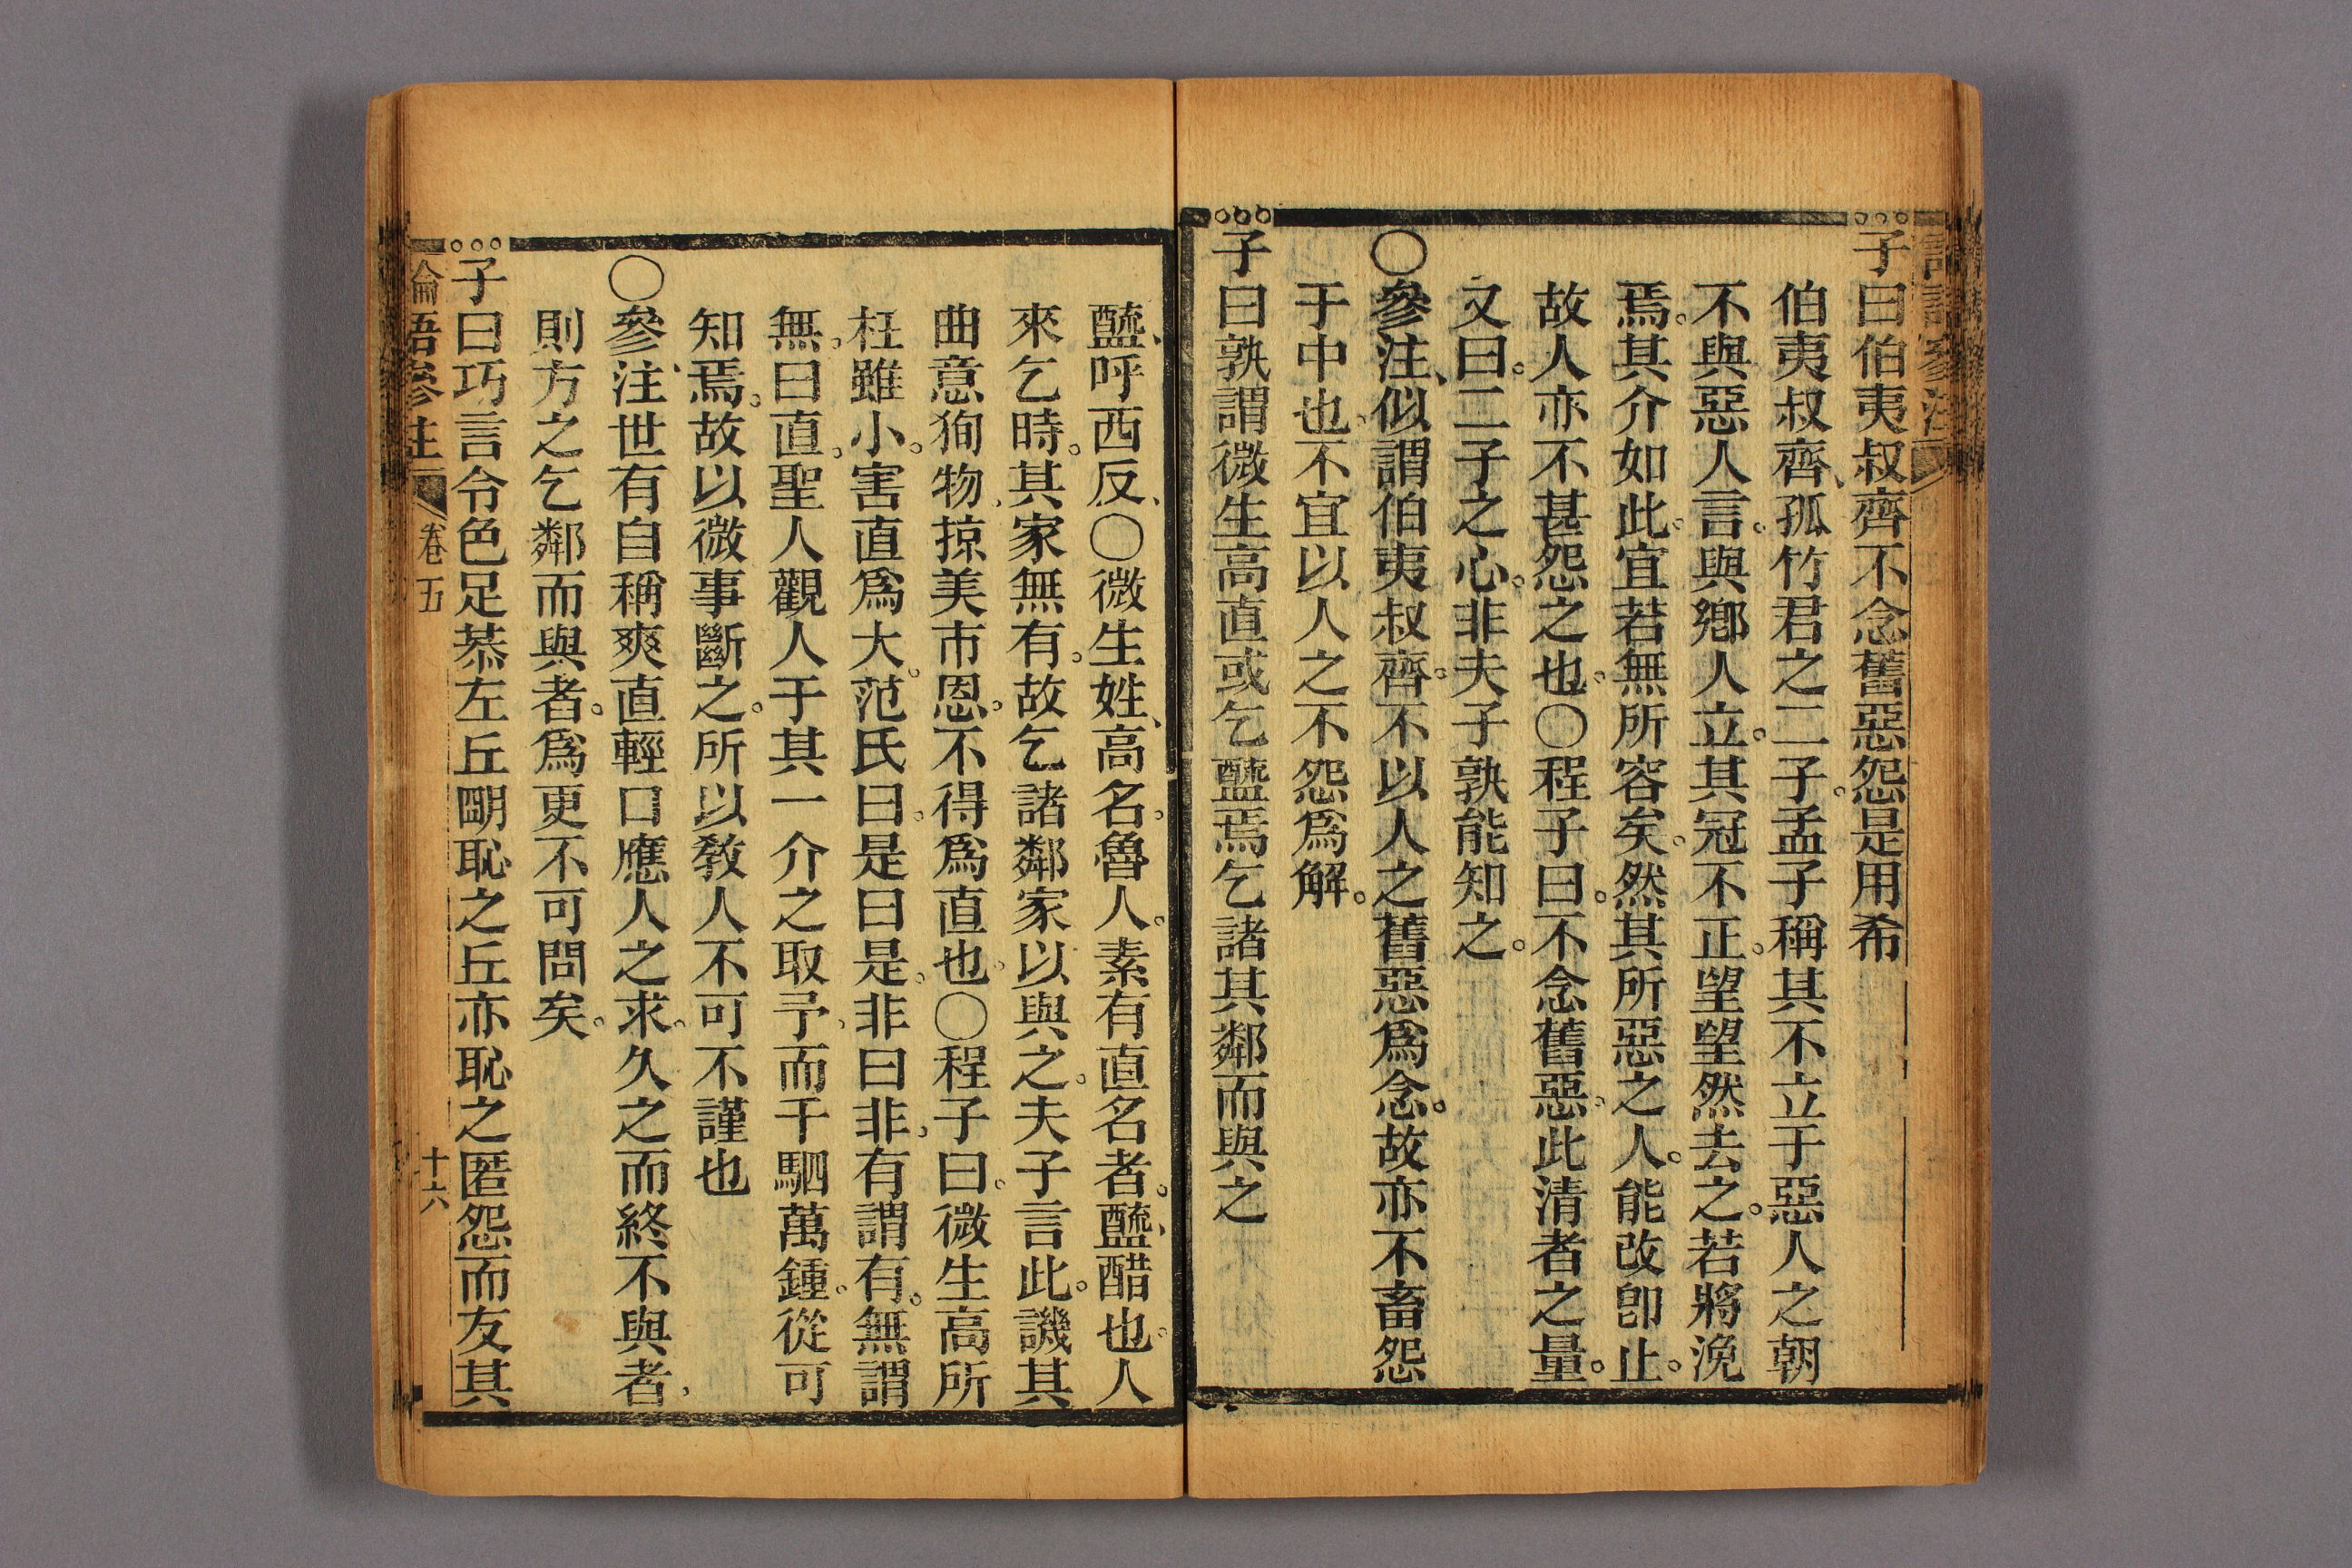 子曰伯夷叔齊不念舊惡怨是用希
伯夷叔齊、孤竹君之二子。孟子稱其不立于惡人之朝
不與惡人言。與鄉人立。其冠不正。望望然去之。若將浼
焉。其介如此。宜若無所容矣。然其所惡之人。能改卽止。
故人亦不甚怨之也。〇程子曰。不念舊惡。此清者之量。
又曰。二子之心。非夫子孰能知之。
〇參注、似謂伯夷叔齊。不以人之舊惡爲念。故亦不畜怨
于中也。不宜以人之不怨爲解。
子曰孰謂微生高直或乞醯焉乞諸其鄰而與之
醯、呼西反、〇微生姓、高名。魯人。素有直名者。醯、醋也。人
來乞時。其家無有。故乞諸鄰家以與之。夫子言此。譏其
曲意狥物、掠美市恩。不得爲直也。〇程子曰。微生高所
枉雖小。害直爲大。范氏曰。是曰是。非曰非。有謂有。無謂
無。曰直。聖人觀人于其一介之取予、而千駟萬鍾。從可
知焉。故以微事斷之。所以敎人不可不謹也
〇參注、世有自稱爽直輕口應人之求。久之而終不與者、
則方之乞鄰而與者。爲更不可問矣。
子曰巧言令色足恭左丘明恥之丘亦恥之匿怨而友其
論語參注 卷五 十六